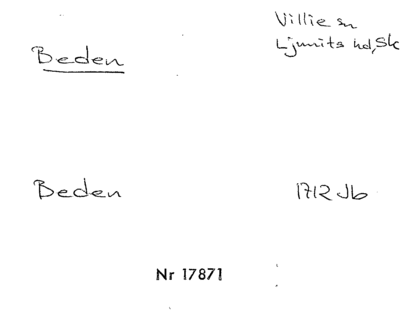 Villie sn
Ljunits hd, Sk
Beden
Beden
1712 Jb
Nr 17871